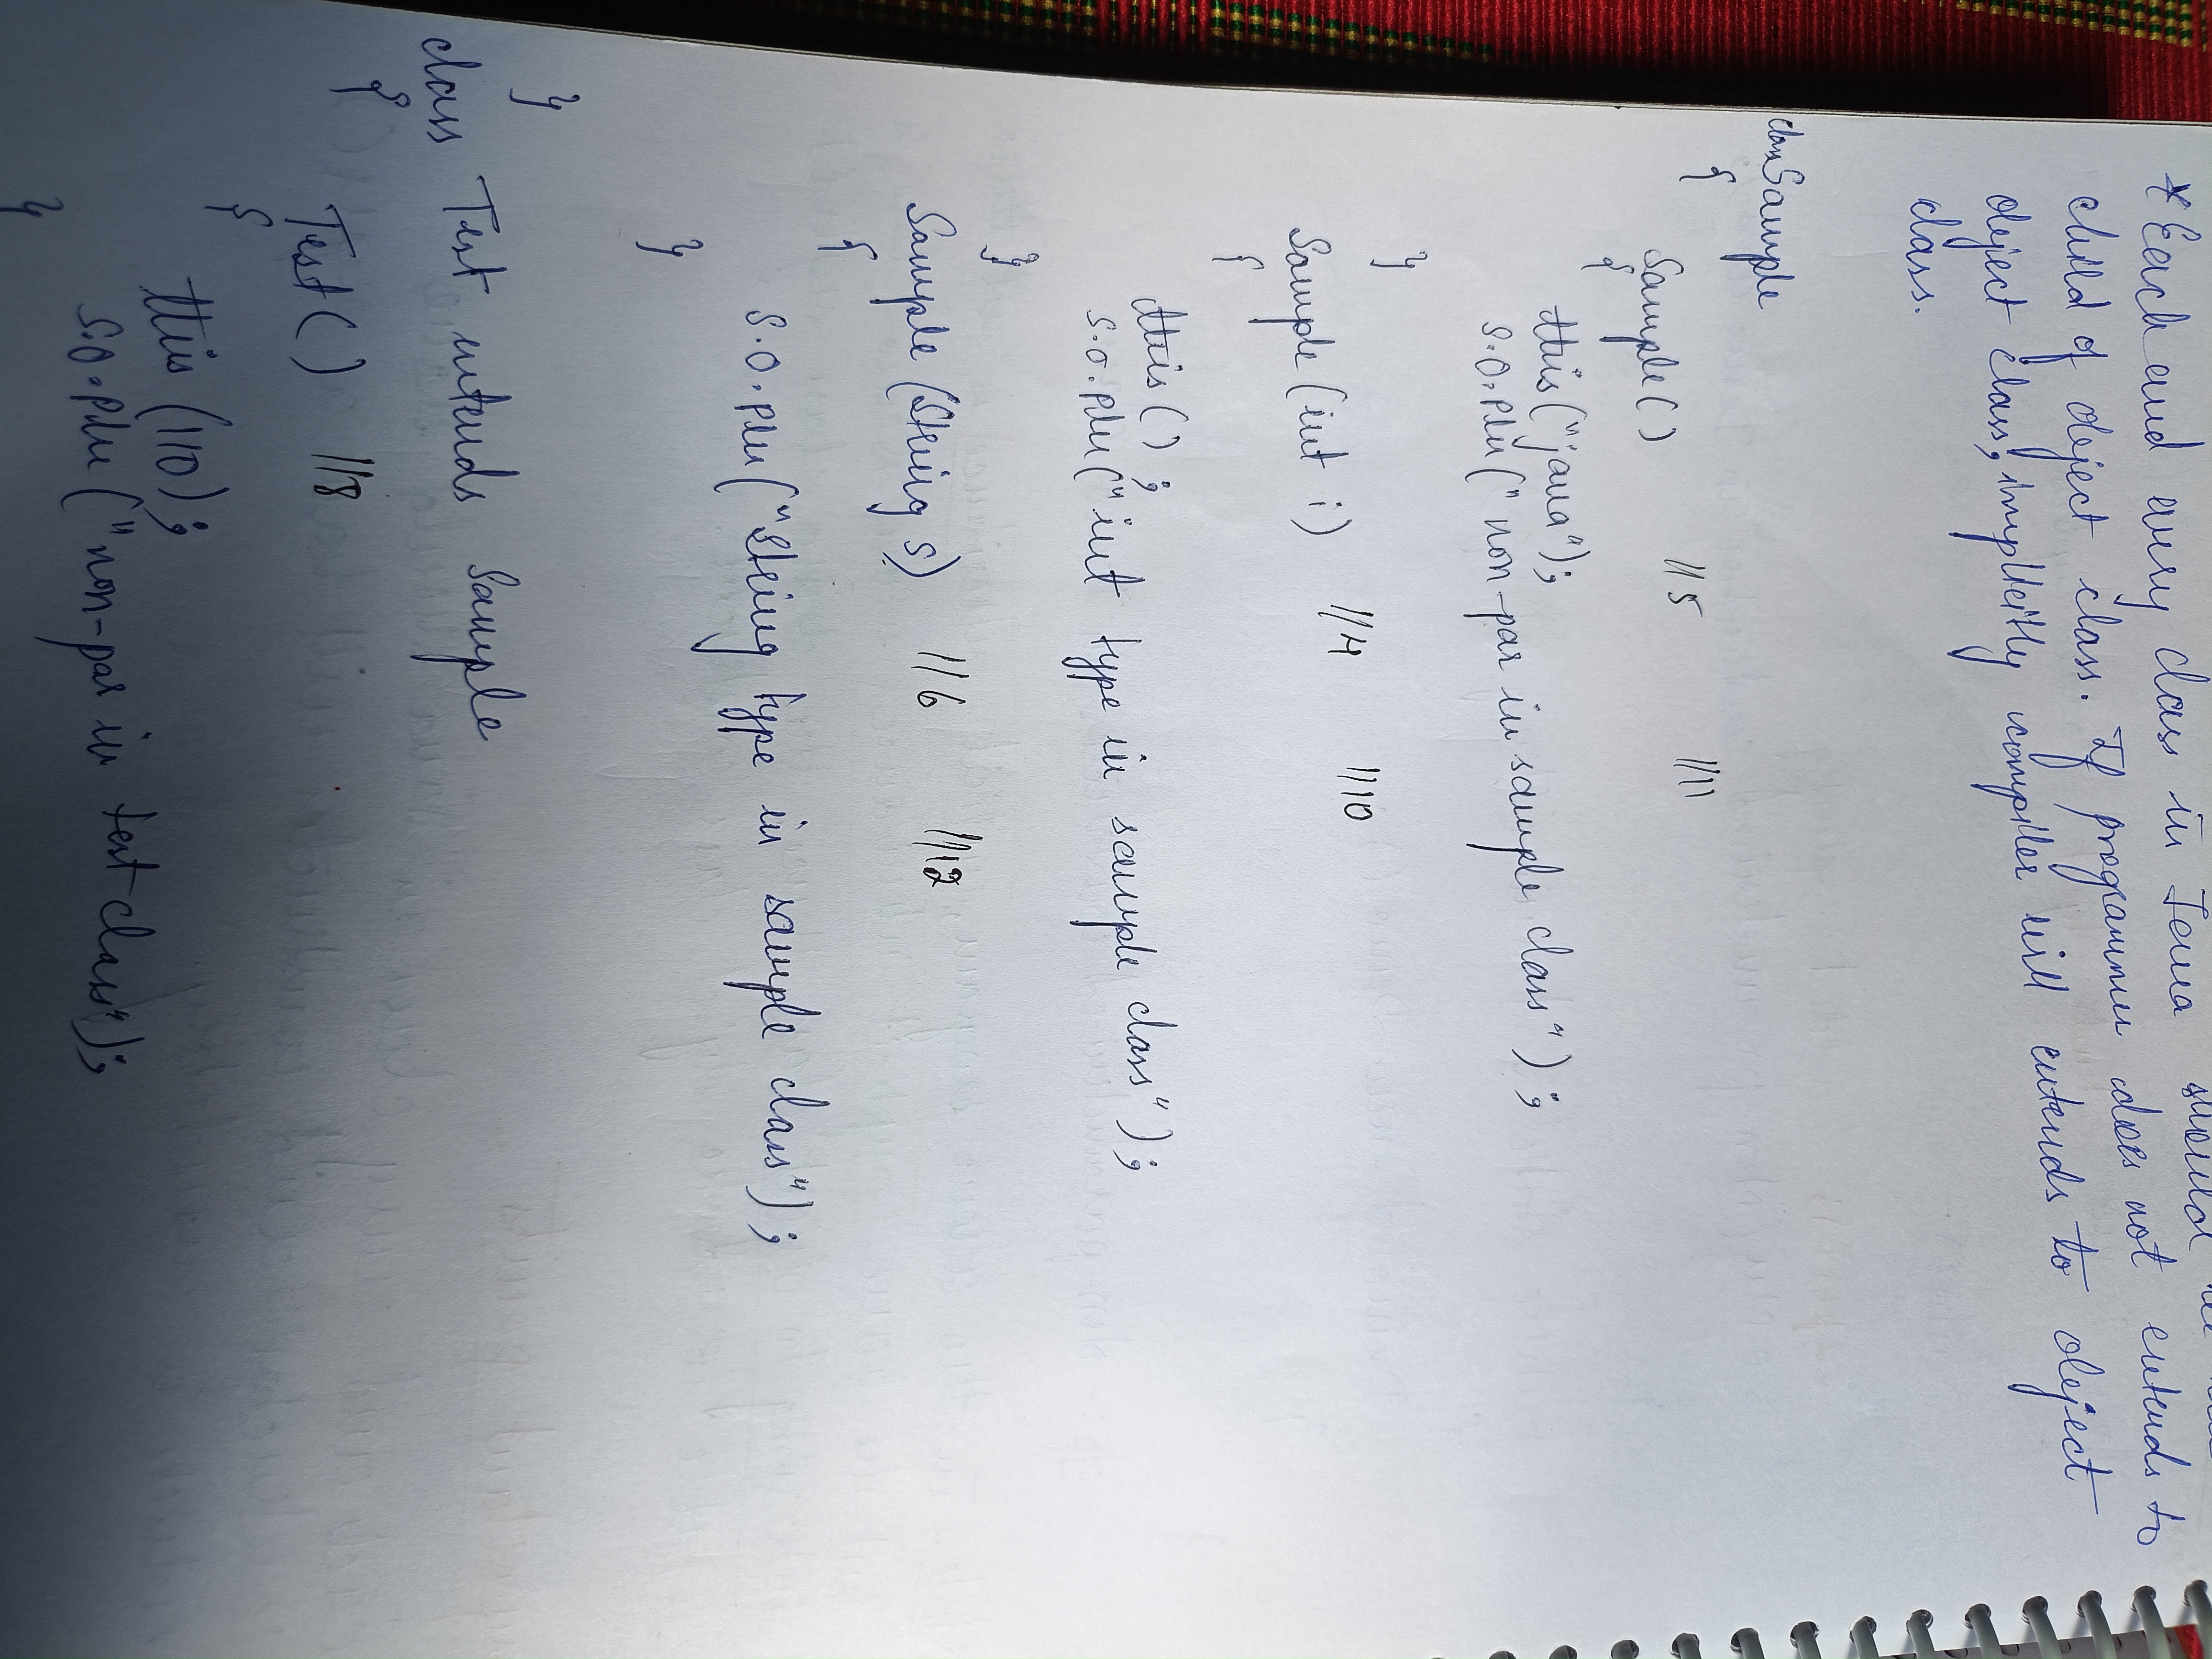 * Each and every class in Java should be
child of object class. If programmer does not extends to
object class, implicitly compiler will extends to object
class.
class Sample
{
Sample ( ) //5 //11
{
this ("java");
S.O.Pln (" non-par in sample class");
}
Sample (int i) //4 //10
{
this ( ) ;
S.O.Pln (" int type in sample class");
}
Sample (String s) //6 //12
{
S.O.Pln ("String type in sample class");
}
}
class Test extends Sample
{
Test ( ) //8
{
this (110);
S.O.Pln ("non-par in test class");
}